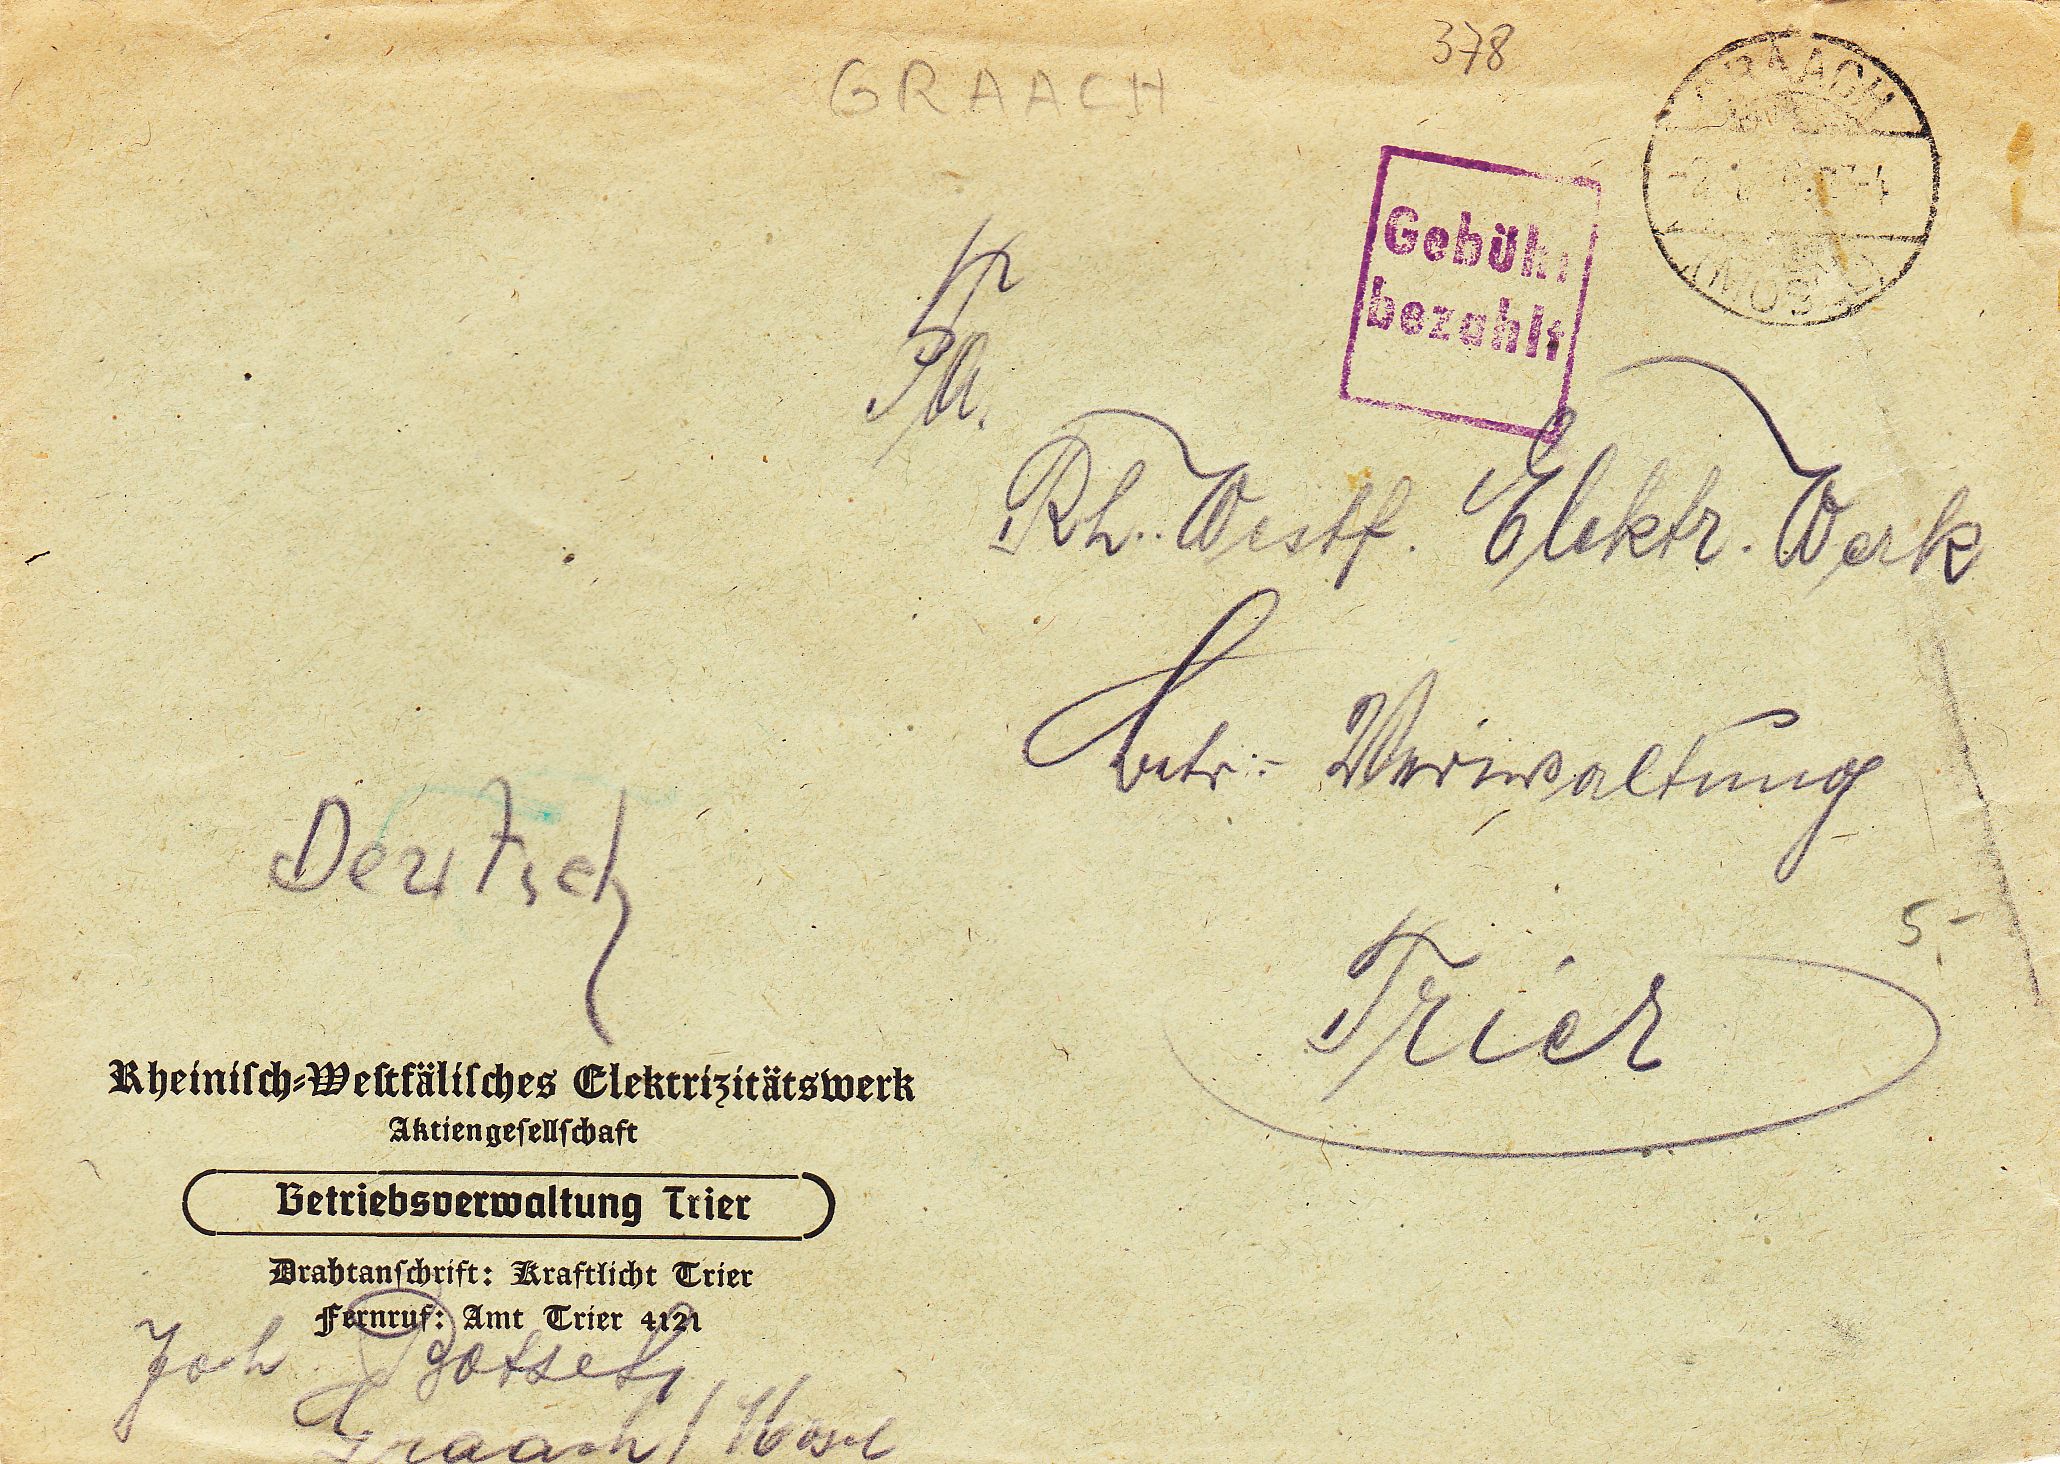 378
GRAACH
GRAACH
(MOSEL)
Gebühr
bezahlt
Fa.
Rh.-Westf. Elektr. Werk
Betr.- Verwaltung
Trier
5,-
Deutsch
Rheinisch-Westfälisches Elektrizitätswerk
Aktiengesellschaft
Betriebsverwaltung Trier
Drahtanschrift: Kraftlicht Trier
Fernruf: Amt Trier 4121
Joh
Graach / Mosel